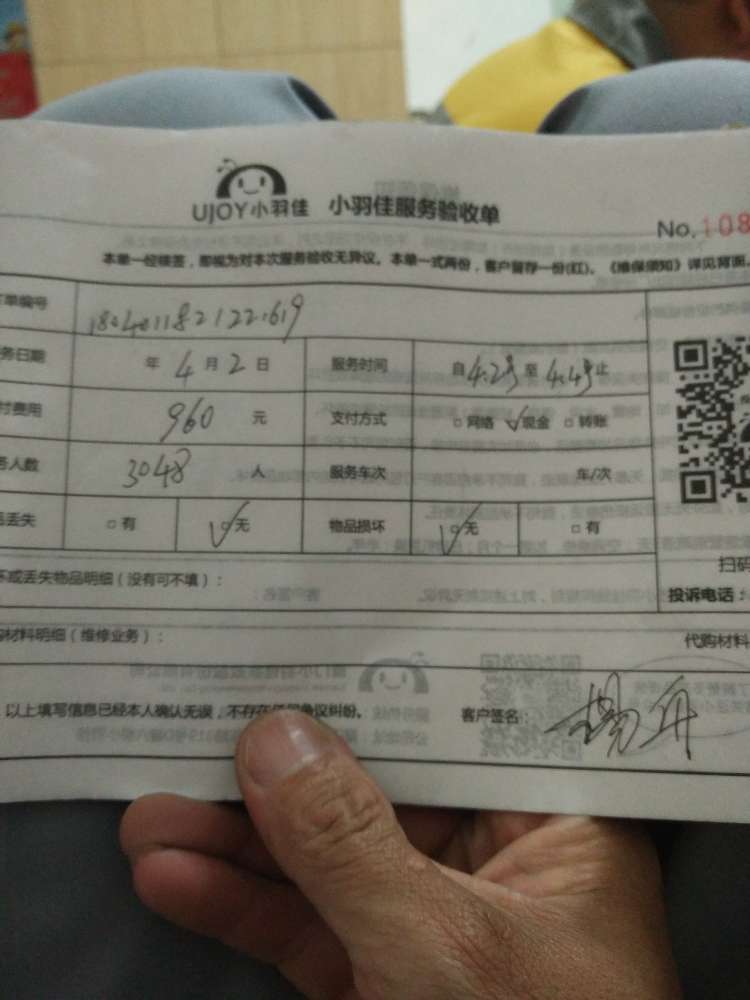 UJOY小羽佳 小羽佳服务验收单
No.108
本单一经核签，即视为对本次服务验收无异议。本单一式两份，客户留存一份(红)。《维保须知》详见背面。
单编号 180401182122619
务日期 年 4 月 2 日 服务时间 自 4.2号 至 4.4号 止
付费用 960 元 支付方式 □网络 ✓现金 □转账
务人数 3048 人 服务车次 车/次
丢失 □有 ✓无 物品损坏 ✓无 □有
坏或丢失物品明细（没有可不填）：
扫码
投诉电话：
材料明细（维修业务）：
代购材料
以上填写信息已经本人确认无误，不存在任何争议纠纷。 客户签名：